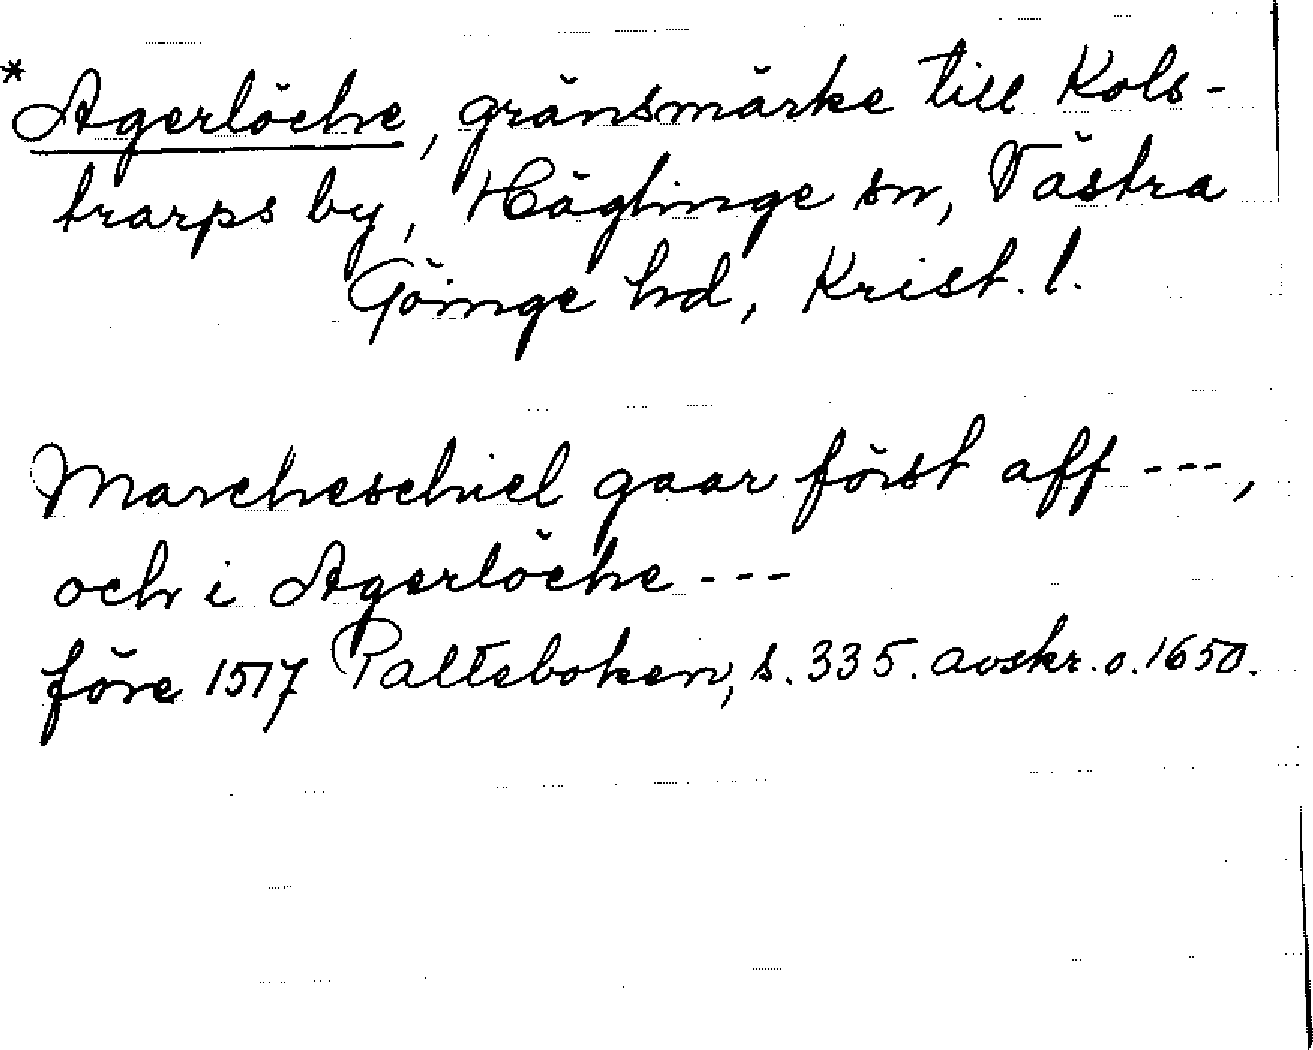 *Agerlöche, gränsmärke till Kols-
trarps by, Häglinge sn, Västra
Göinge hd, Krist. l.
Marcheschiel gaar först aff ---,
och i Agerlöche ---
före 1517 Palteboken, s. 335. avskr. o. 1650.